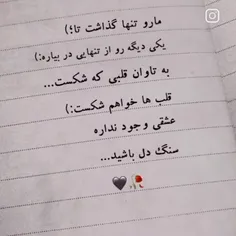 مارو تنها گذاشت تا؛)
یکی دیگه رو از تنهایی در بیاره:)
به تاوان قلبی که شکست...
قلب ها خواهم شکست:)
عشقی وجود نداره
سنگ دل باشید...
🖤🥀